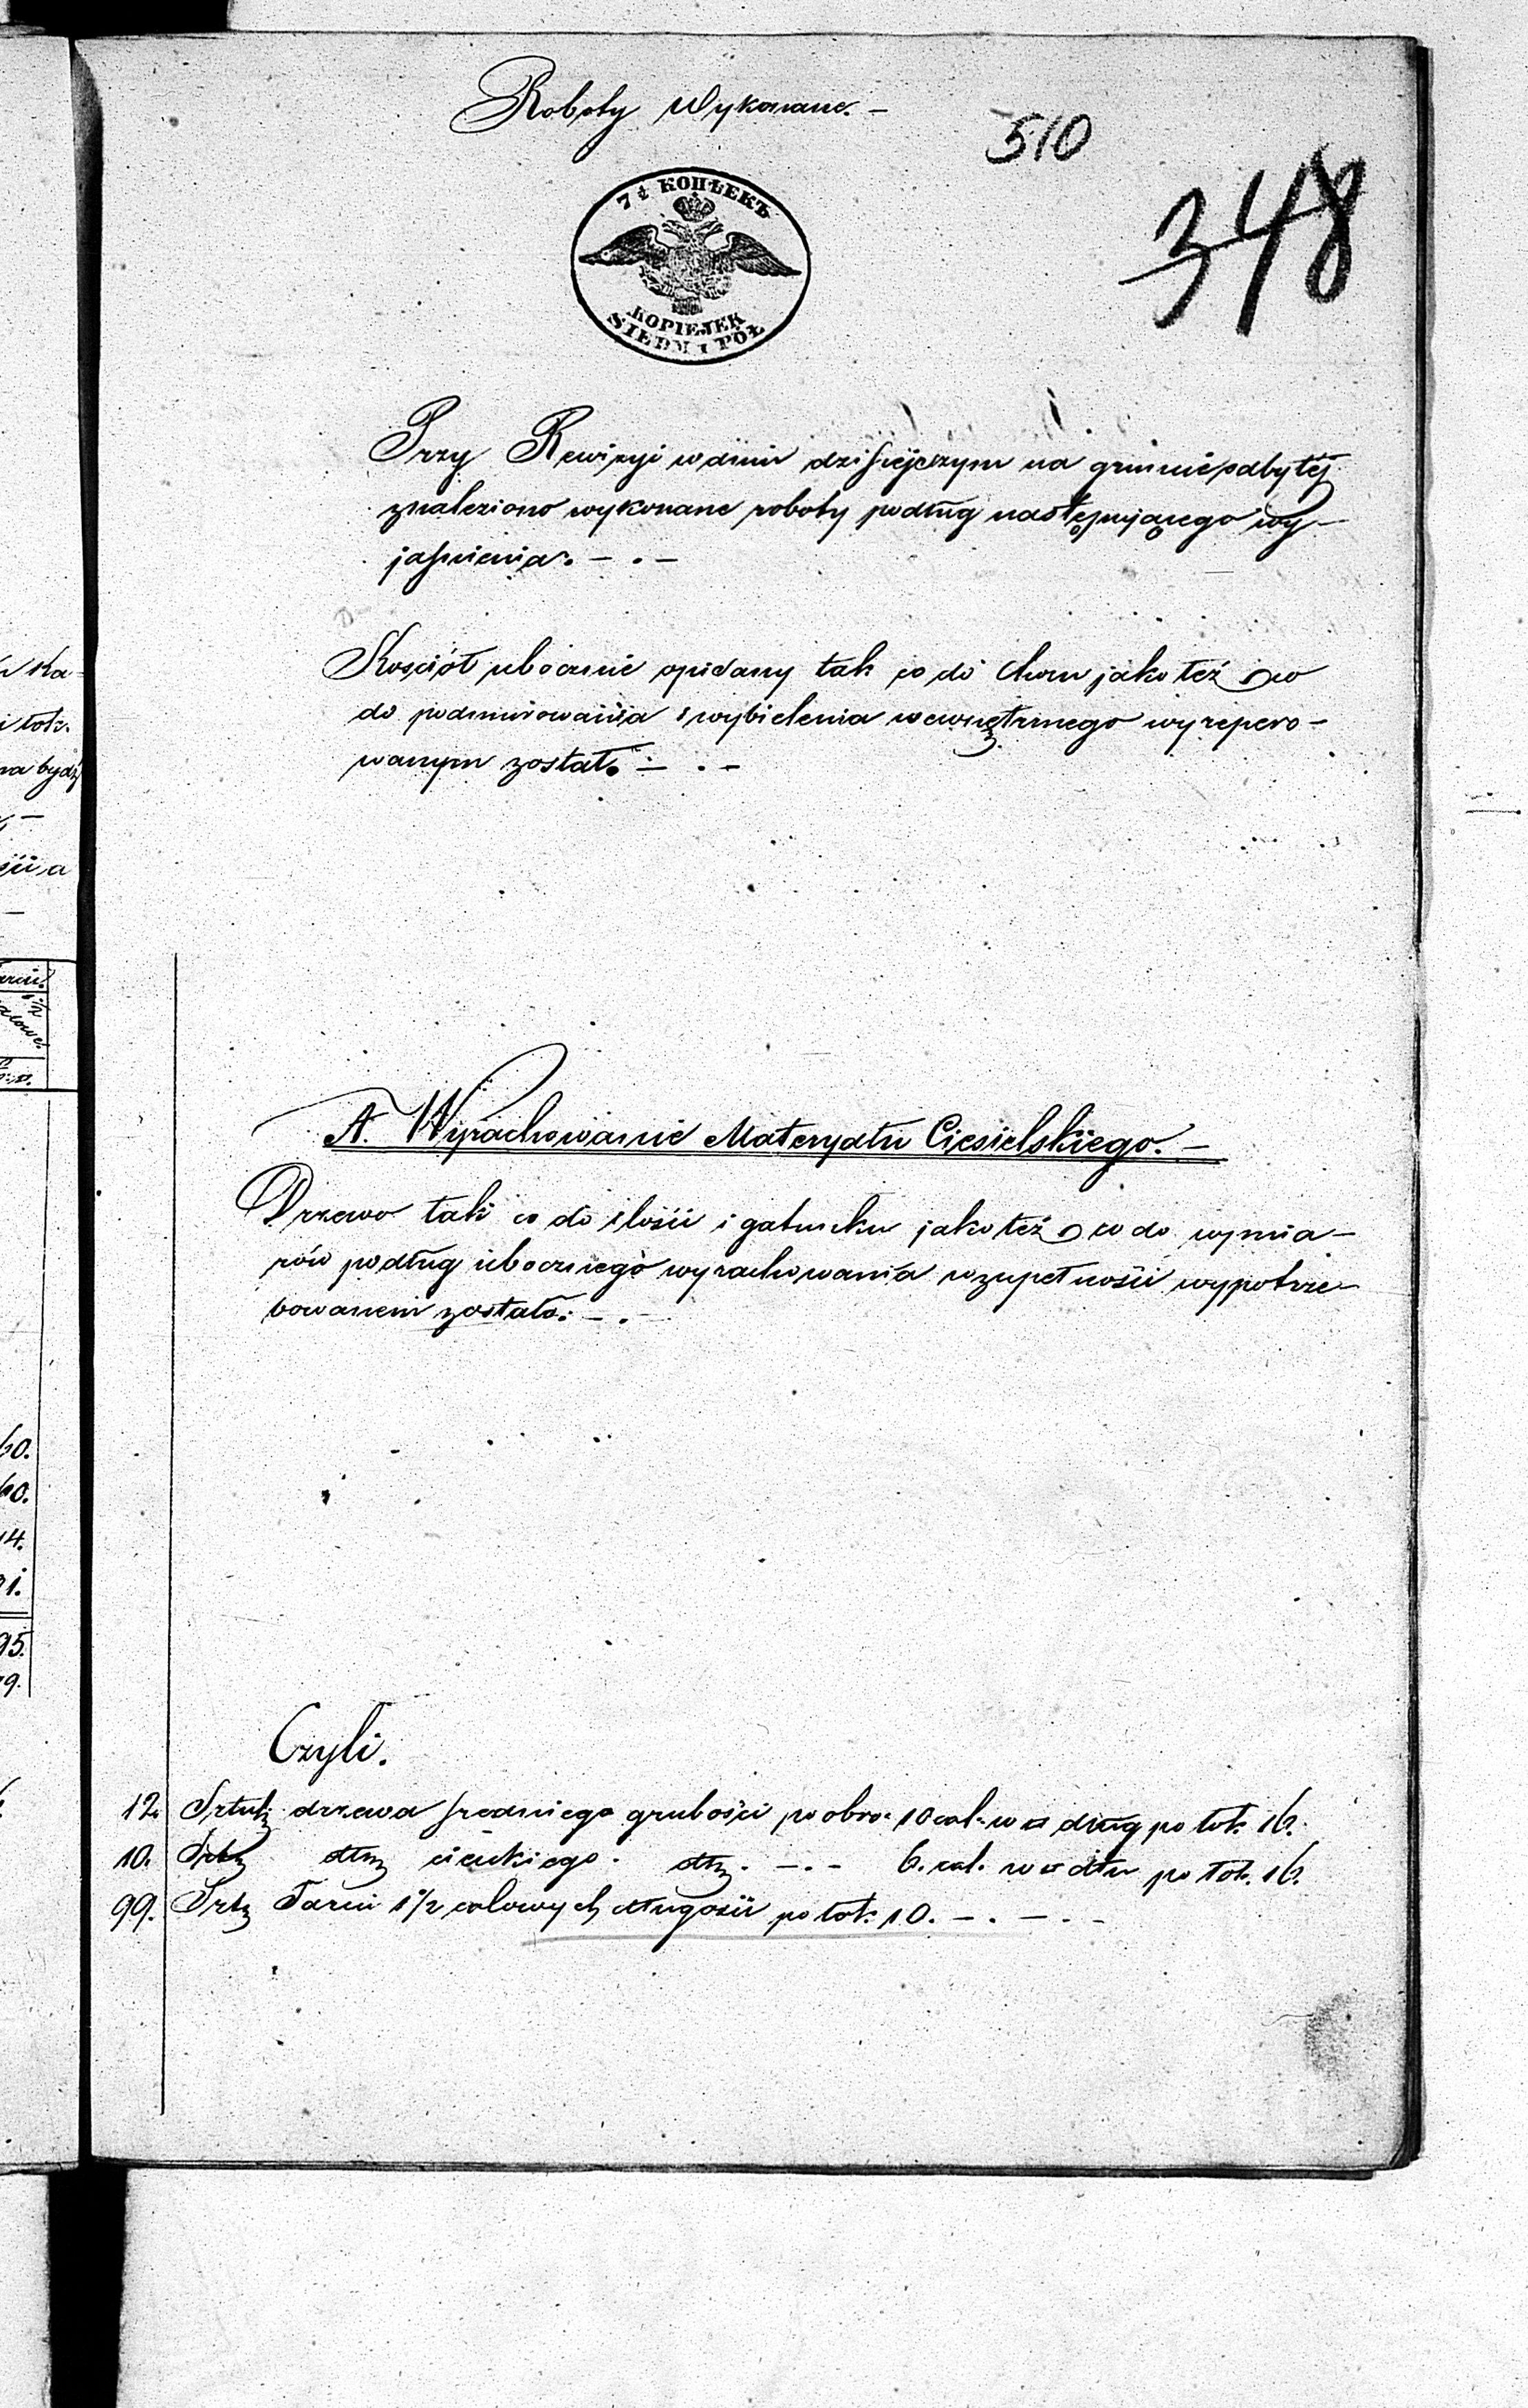 Roboty Wykonane. —
510
348
7½ КОПѢЕКЪ
KOPIEJEK
SIEDM I PÓŁ
Przy Rewizyi w dniu dzisiejszym na gruncie odbytéj
znaleziono wykonane roboty podług następującego wy-
jaśnienia. — . —
Kościół ubocznie opisany tak co do choru jako też co
do podmurowania i wybielenia wewnętrznego wyrepero-
wanym został. — . —
A. Wyrachowanie Materyału Ciesielskiego. —
Drzewo tak co do ilości i gatunku jako też co do wymia-
rów podług ubocznego wyrachowania w zupełności wypotrze-
bowanem zostało. — .
Czyli.
12. Sztuk drzewa średniego grubości po obro: 10 cal: w □ dług po łok. 16.
10. Sztk dtto cieńkiego. dtto. — . — 6. cal. w □ dłu po łok. 16.
99. Sztk Tarcic 1 1/2 calowych długości po łok: 10. — . — . —
n ka-
i łok.
na bydź
ścia
60.
60.
14.
95.